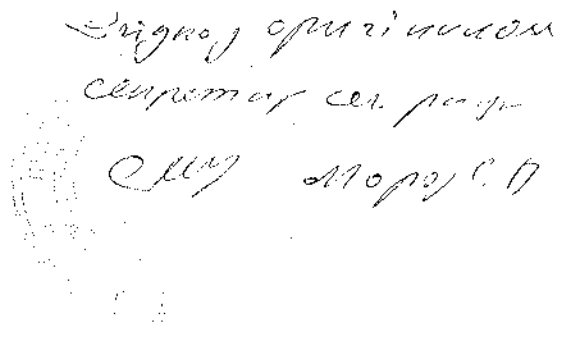 Згідно з оригіналом
секретар сіл. ради
Мороз С. П